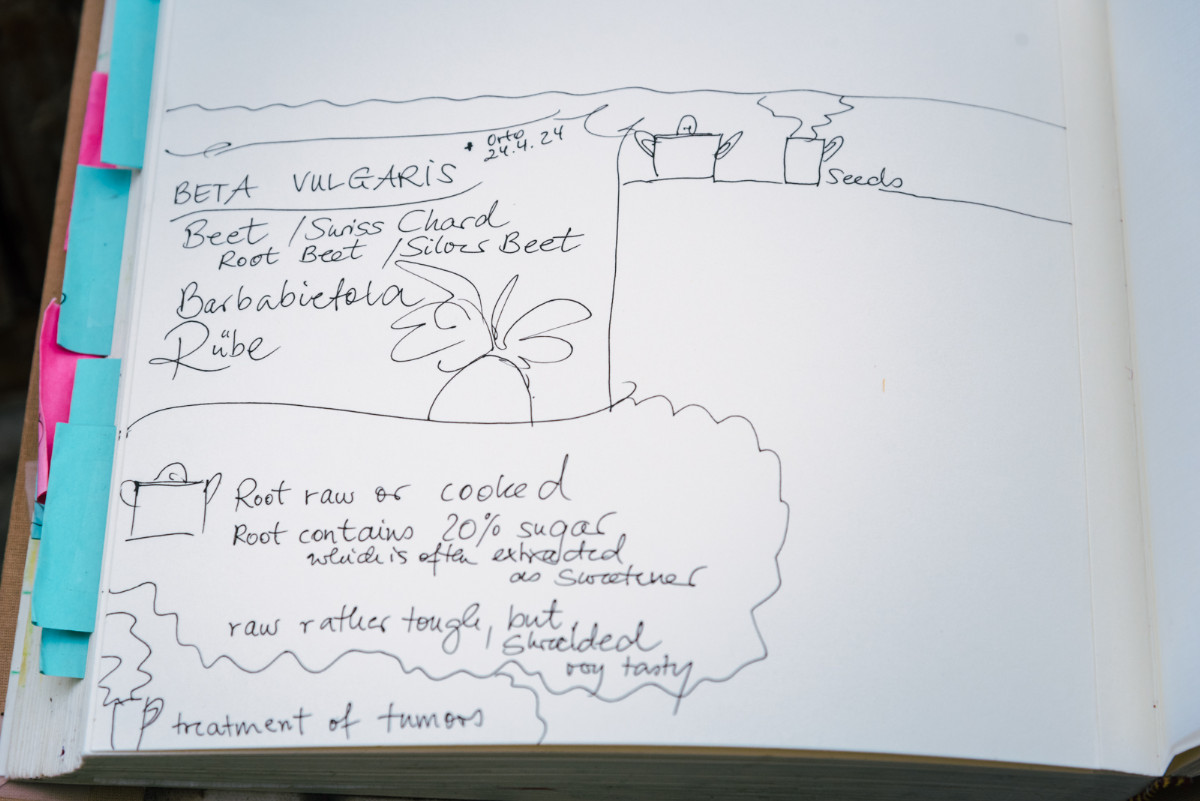 * Orto
24.4.24
BETA VULGARIS
Beet / Swiss Chard
Root Beet / Silver Beet
Barbabietola
Rübe
Seeds
Root raw or cooked
Root contains 20% sugar
which is often extracted
as sweetener
raw rather tough, but
shredded
very tasty
treatment of tumors